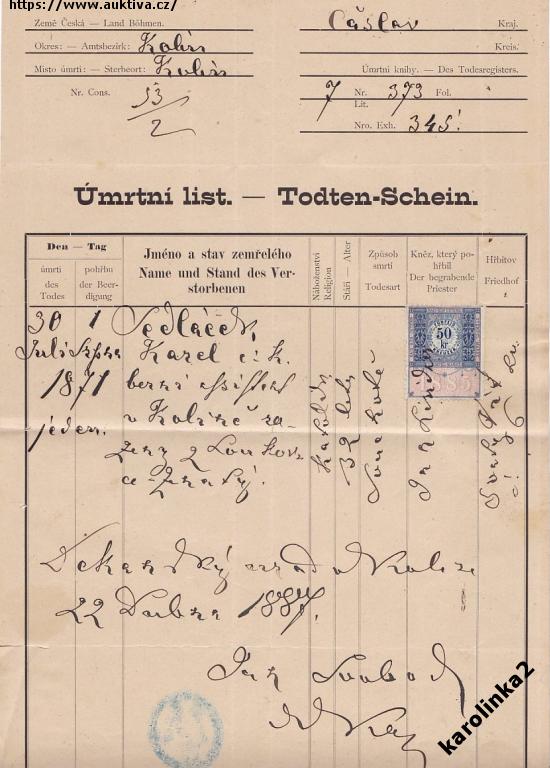 https://www.auktiva.cz/
Země Česká — Land Böhmen.
Čáslav Kraj.
Okres: — Amtsbezirk: Kolín
Kreis.
Místo úmrtí: — Sterbeort: Kolín
Úmrtní knihy. — Des Todesregisters.
Nr. Cons. 53/2
7 Nr. 373 Fol.
Lit.
Nro. Exh. 345!
Úmrtní list. — Todten-Schein.
Den — Tag
úmrtí
des
Todes
pohřbu
der Beer-
digung
Jméno a stav zemřelého
Name und Stand des Ver-
storbenen
Náboženství
Religion
Stáří — Alter
Způsob
smrti
Todesart
Kněz, který po-
hřbil
Der begrabende
Priester
Hřbitov
Friedhof
30 1
Juli Srpna
1871
jeden.
Sedláček,
Karel c. k.
berní assistent
v Kolíně
50
kr
1885
32 let
Děkanský úřad v Kolíně
22 Dubna 1887.
Jan Svoboda
karolinka2